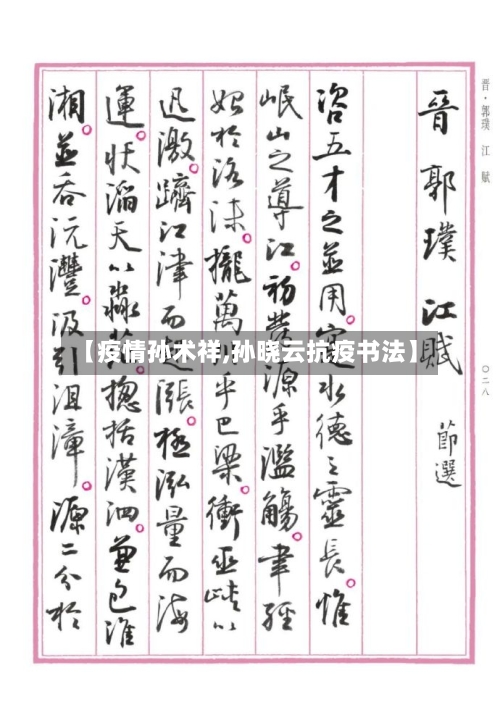 晉·郭璞 江賦
〇二八
晉郭璞江賦 節選
咨五才之並用。寔水德之靈長。惟
岷山之導江。初發源乎濫觴。聿經
始於洛沬。攏萬川乎巴梁。衝巫峽以
迅激。躋江津而起漲。極泓量而海
運。狀滔天以淼茫。揔括漢泗。兼包淮
湘。並吞沅灃。汲引沮漳。源二分於
【疫情孙术祥,孙晓云抗疫书法】